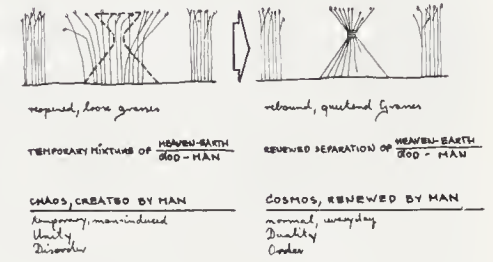 reopened, loose grasses
TEMPORARY MIXTURE OF HEAVEN-EARTH
GOD - MAN
CHAOS, CREATED BY MAN
temporary, man-induced
Unity
Disorder
rebound, quietend Grasses
RENEWED SEPARATION OF HEAVEN-EARTH
GOD - MAN
COSMOS, RENEWED BY MAN
normal, everyday
Duality
Order